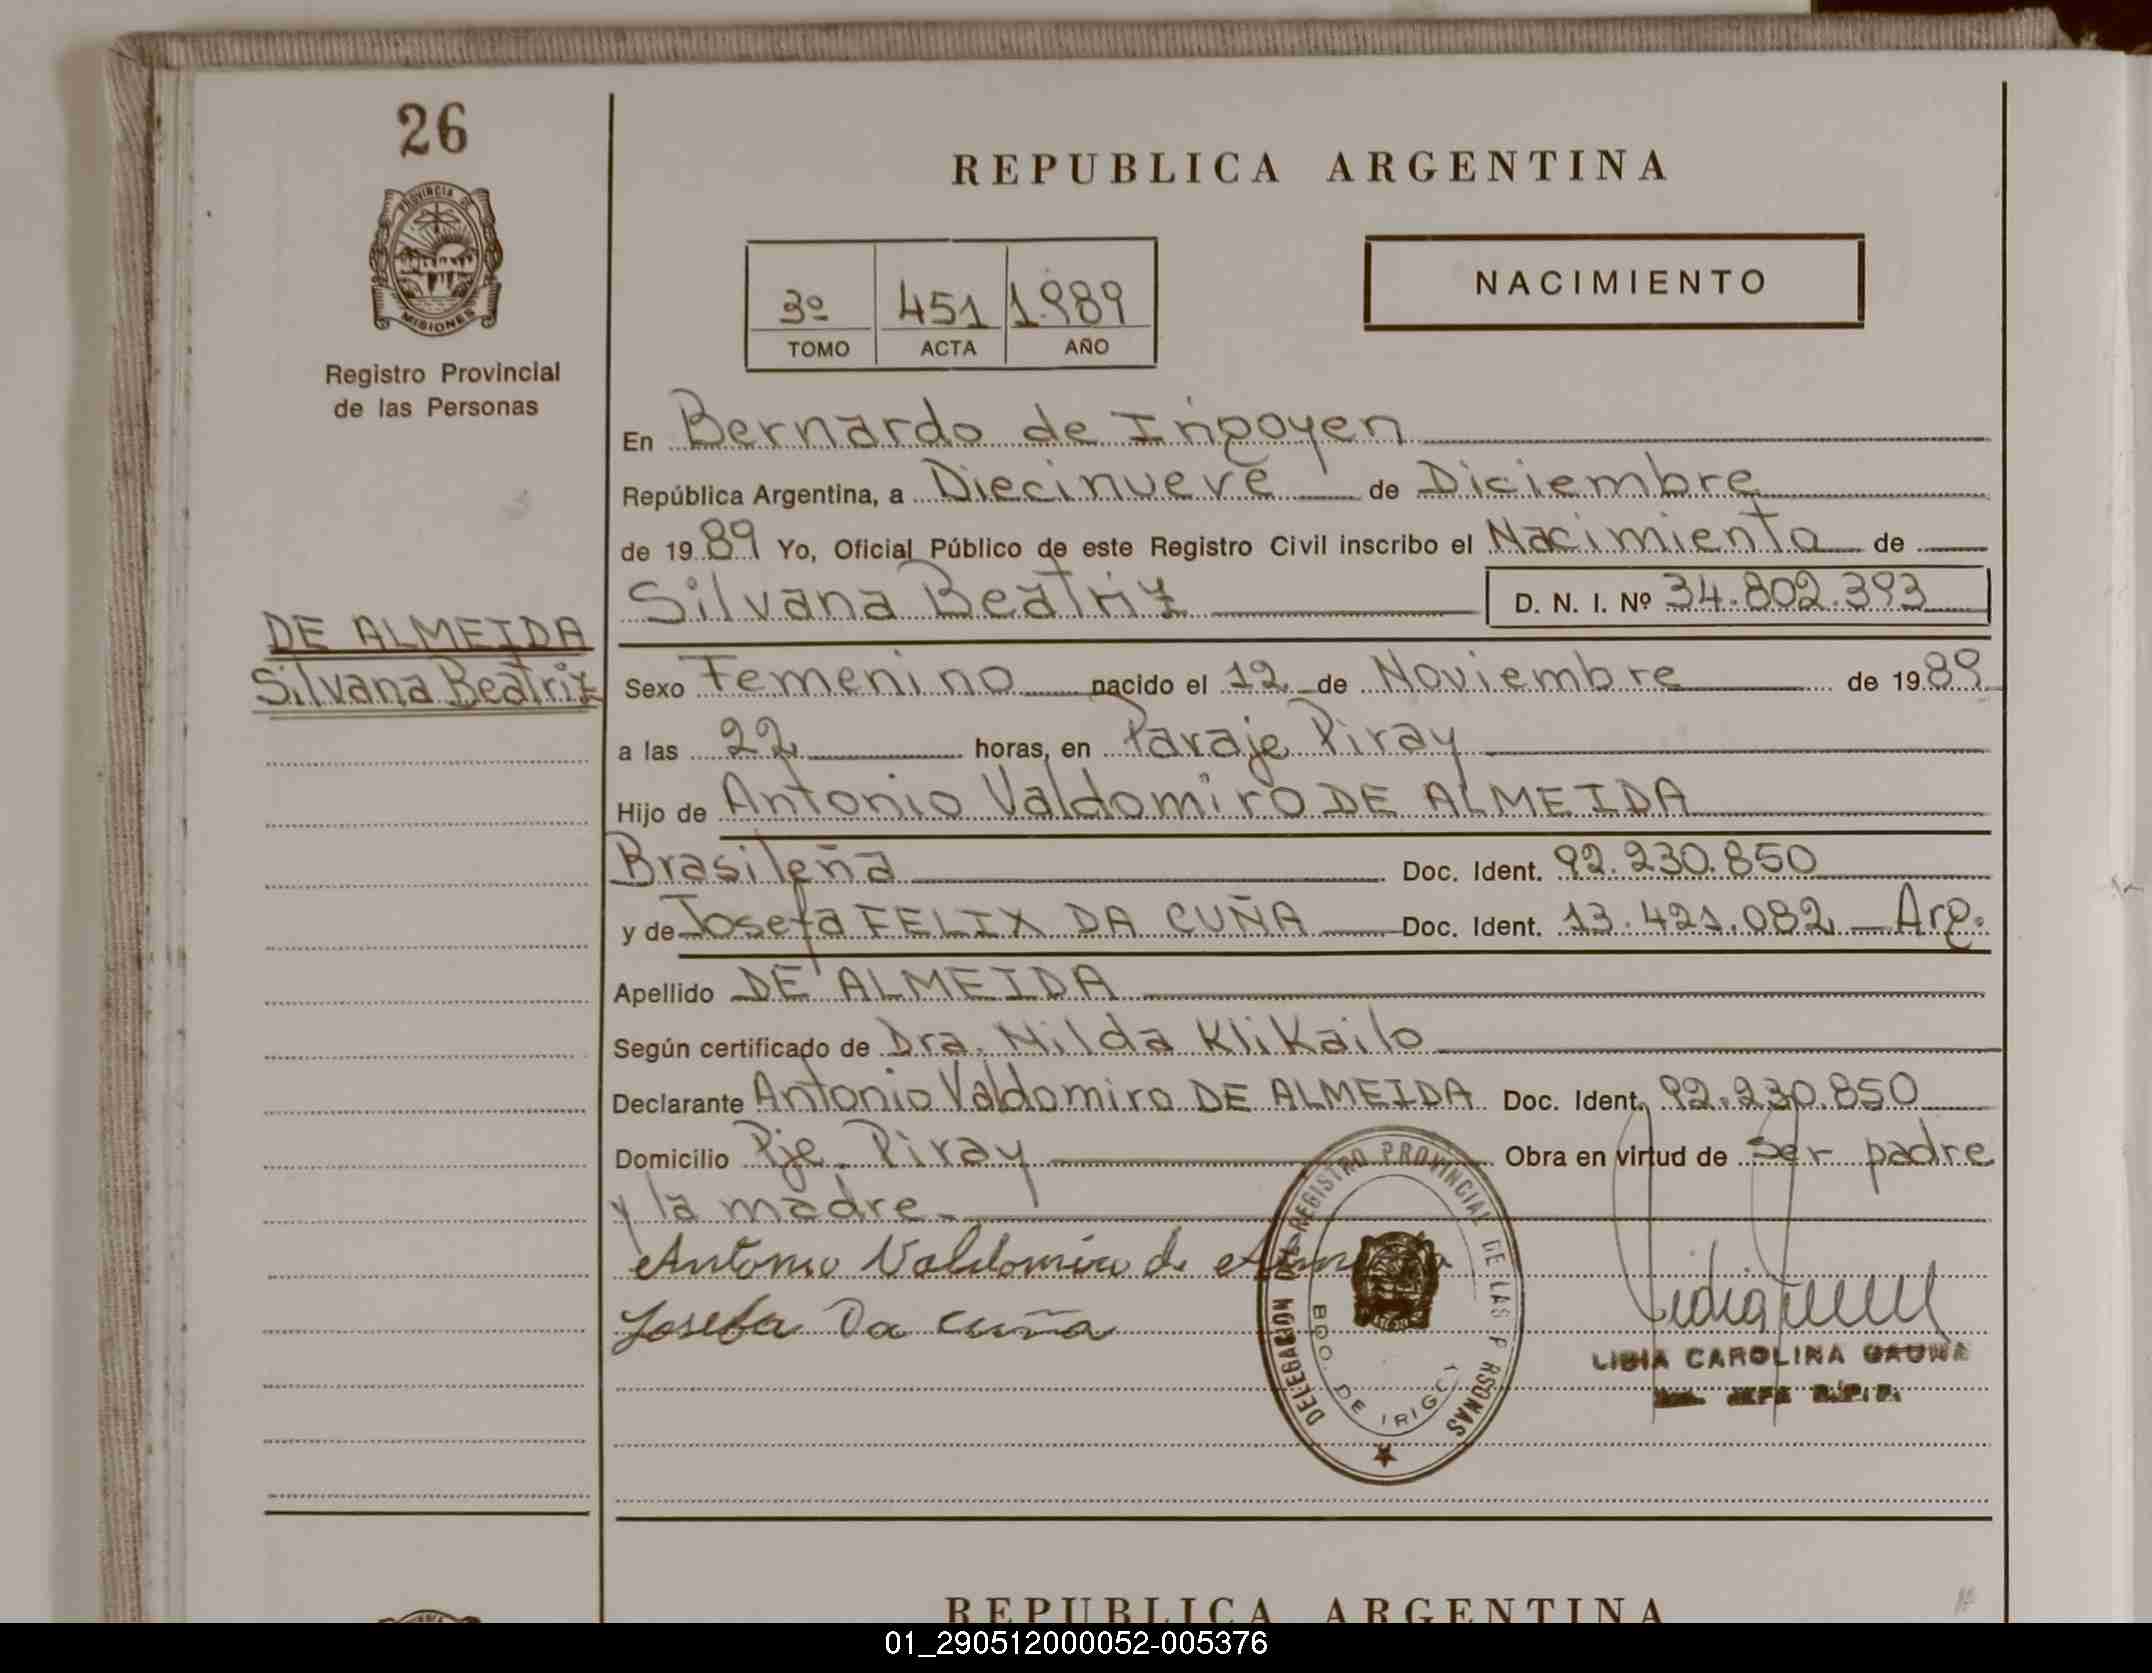 26
PROVINCIA DE
MISIONES
Registro Provincial
de las Personas
DE ALMEIDA
Silvana Beatriz
REPUBLICA ARGENTINA
NACIMIENTO
3º 451 1.989
TOMO ACTA AÑO
En Bernardo de Irigoyen
República Argentina, a Diecinueve de Diciembre
de 1989 Yo, Oficial Público de este Registro Civil inscribo el Nacimiento de
Silvana Beatriz D. N. I. Nº 34.802.393
Sexo Femenino nacido el 12 de Noviembre de 1989
a las 22 horas, en Paraje Piray
Hijo de Antonio Valdomiro DE ALMEIDA
Brasileña Doc. Ident. 92.230.850
y de Josefa FELIX DA CUÑA Doc. Ident. 13.421.082 Arg.
Apellido DE ALMEIDA
Según certificado de Dra. Nilda Klikailo
Declarante Antonio Valdomiro DE ALMEIDA Doc. Ident. 92.230.850
Domicilio Pje. Piray Obra en virtud de ser padre
y la madre
Antonio Valdomiro de
Josefa Da cuña
DELEGACION DEL REGISTRO PROVINCIAL DE LAS P RSONAS
BDO. DE IRIGOY
LIDIA CAROLINA GAUNA
JEFE R.P.P.
REPUBLICA ARGENTINA
01_290512000052-005376